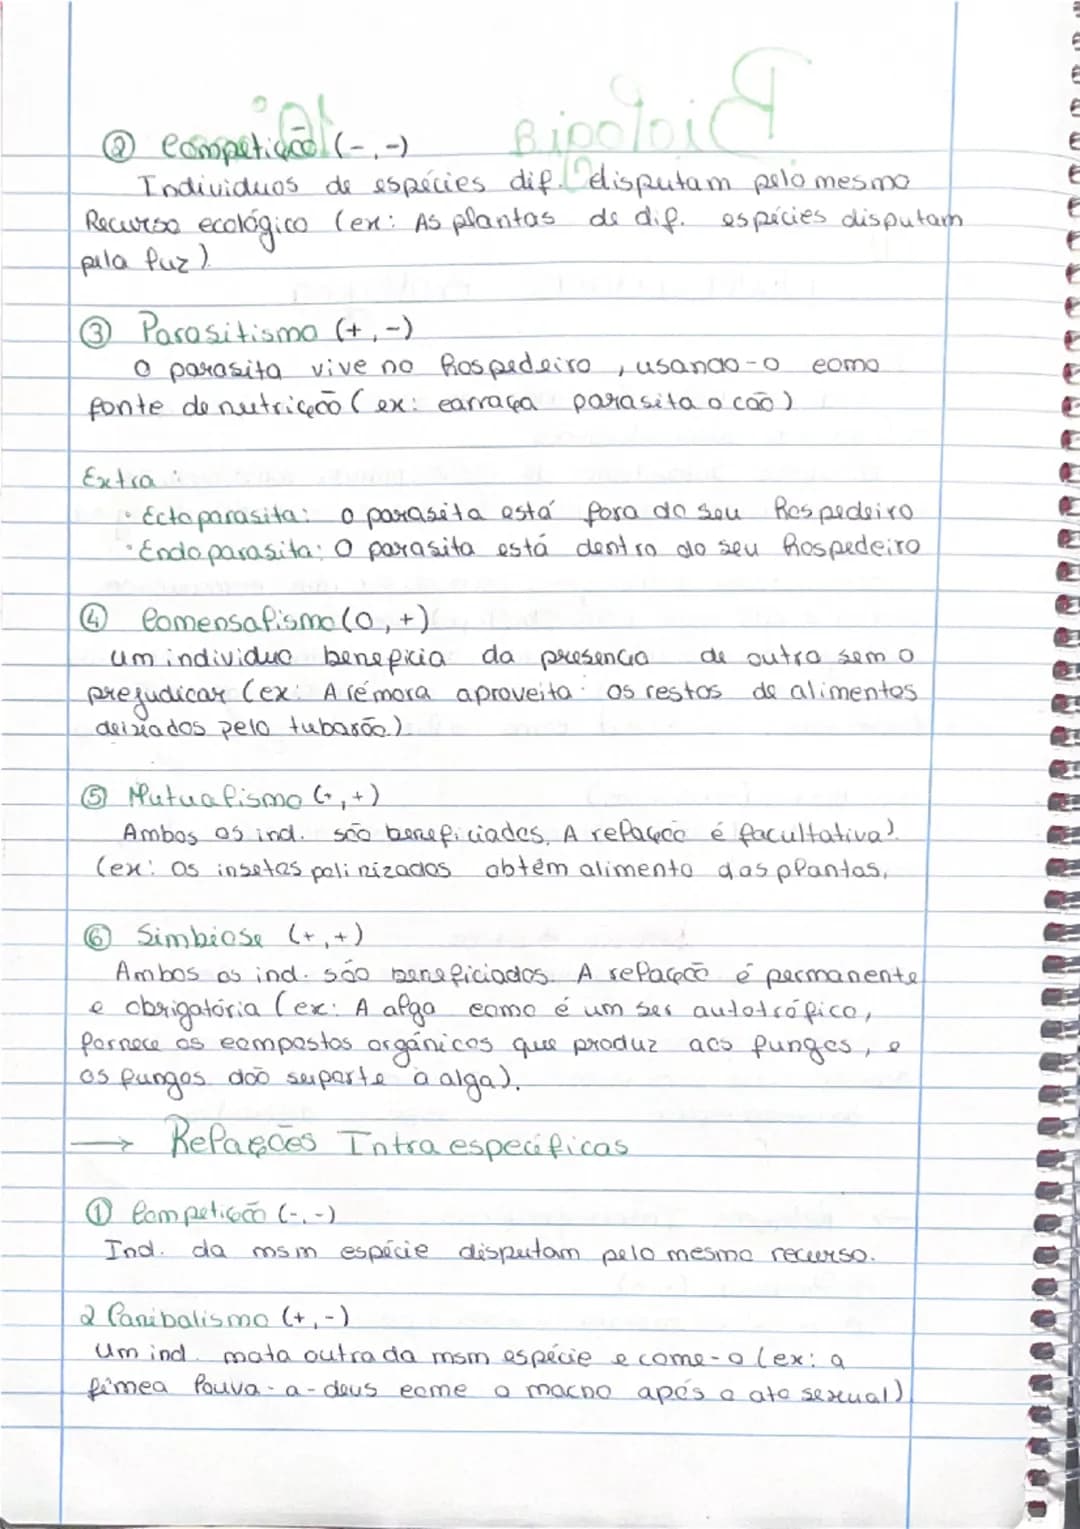 ② Competição (-,-)
Individuos de espécies dif. disputam pelo mesmo
Recurso ecológico (ex: As plantas de dif. espécies disputam
pela luz)
③ Parasitismo (+,-)
O parasita vive no hospedeiro, usando-o como
fonte de nutrição (ex: carraça parasita o cão)
Extra:
· Ectoparasita: o parasita está fora do seu hospedeiro
· Endoparasita: O parasita está dentro do seu hospedeiro
④ Comensalismo (0,+)
Um individuo beneficia da presença de outro sem o
prejudicar (ex: A rémora aproveita os restos de alimentos
deixados pelo tubarão.)
⑤ Mutualismo (+,+)
Ambos os ind. são beneficiados. A relação é facultativa).
(ex: Os insetos polinizados obtêm alimento das plantas,
⑥ Simbiose (+,+)
Ambos os ind. são beneficiados. A relação é permanente
e obrigatória (ex: A alga como é um ser autotrófico,
fornece os compostos orgánicos que produz aos fungos, e
os fungos dão suporte à alga).
→ Relações Intraespecíficas
① Competição (-,-)
Ind. da msm espécie disputam pelo mesmo recurso.
2 Canibalismo (+,-)
Um ind. mata outro da msm espécie e come-o (ex: a
fêmea louva-a-deus come o macho após o ato sexual)